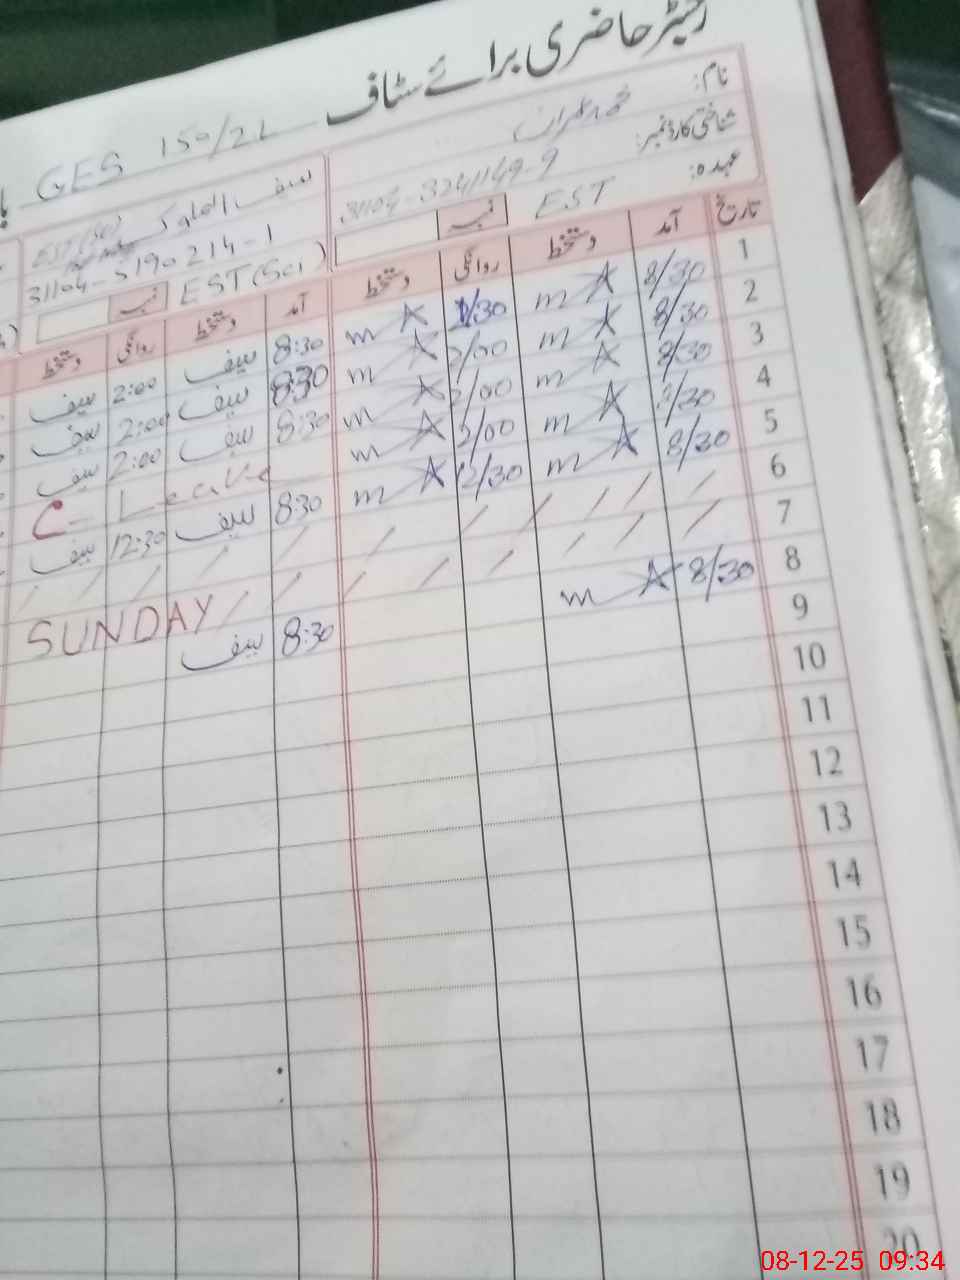 رجسٹر حاضری برائے سٹاف
GES 150/2L
نام: محمد عمران
شناختی کارڈ نمبر: 31104-3241149-9
عہدہ: EST
نمبر
سیف الملوک
EST (Sci)
31104-5190214-1
EST (Sci)
نمبر
تاریخ آمد دستخط روانگی دستخط آمد دستخط روانگی دستخط
1 8/30 m 1/30 m 8:30 سیف 2:00 سیف
2 8/30 m 2/00 m 8:30 سیف 2:00 سیف
3 8/30 m 2/00 m 8:30 سیف 2:00 سیف
4 8/30 m 2/00 m C- Leave
5 8/30 m 12/30 m 8:30 سیف 12:30 سیف
6
7 SUNDAY
8 8/30 m 8:30 سیف
9
10
11
12
13
14
15
16
17
18
19
20
08-12-25 09:34